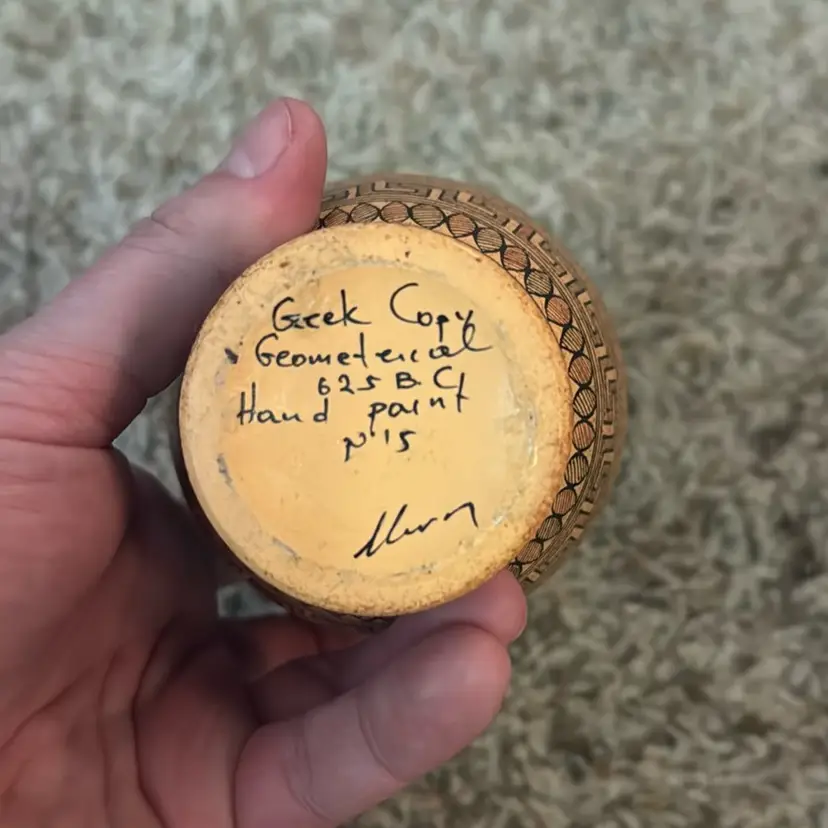 Greek Copy
Geometrical
625 B.C
Hand paint
N'15